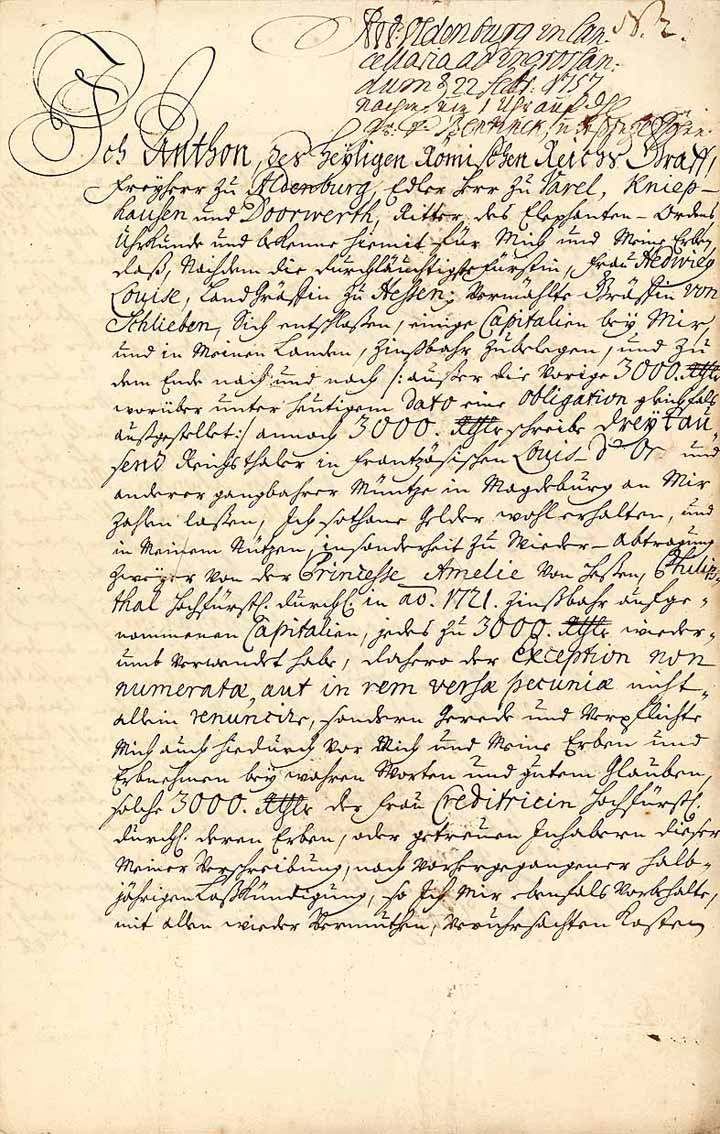 N. 2.
Prod: Oldenburg in Can-
cellaria ad ingrossan-
dum d 22 Sept: 1757.
nachm: um 1 Uhr
Ich Anthon, des heyligen Römischen Reichs Graff,
Freyherr zu Aldenburg, Edler Herr zu Varel, Kniep-
hausen und Doorwerth, Ritter des Elephanten-Ordens
Uhrkunde und bekenne hiemit für Mich und Meine Erben,
daß, Nachdem die durchläuchtigste Fürstin, Frau Hedwieg
Louise, LandGräffin zu Hessen, Vermählte Gräffin von
Schlieben, Sich entschloßen, einige Capitalien bey Mir,
und in Meinen Landen, zinßbahr zubelegen, und zu
dem Ende nach und nach /: außer die Vorige 3000. Rthlr
worüber unter heutigem dato eine obligation gleichfals
außgestellet :/ annoch 3000. Rthlr schreibe dreytau-
send Reichsthaler in Frantzösischen Louis d'Or und
anderer gangbahrer Müntze in Magdeburg an Mir
zahlen laßen, Ich sothane Gelder wohl erhalten, und
in Meinem Nutzen, insonderheit zu Wieder-Abtragung
zweyer von der Princesse Amelie von Heßen, Philips-
thal Hochfürstl. durchl. in ao. 1721. zinßbahr aufge-
nommenen Capitalien, jedes zu 3000. Rthlr wieder-
umb verwendet habe, dahero der Exception non
numeratæ, aut in rem versæ pecuniæ nicht
allein renuncire, sondern Gerede und Verpflichte
Mich auch hiedurch vor Mich und Meine Erben und
Erbnehmen bey wahren Worten und gutem Glauben,
solche 3000. Rthlr der Frau Creditricin Hochfürstl.
durchl. deren Erben, oder getreuen Inhabern dieser
Meiner Verschreibung, nach vorhergegangener halb-
jährigen Loßkündigung, so Ich Mir ebenfals Vorbehalte,
mit allen wieder Vermuthen, Veruhrsachten Kosten